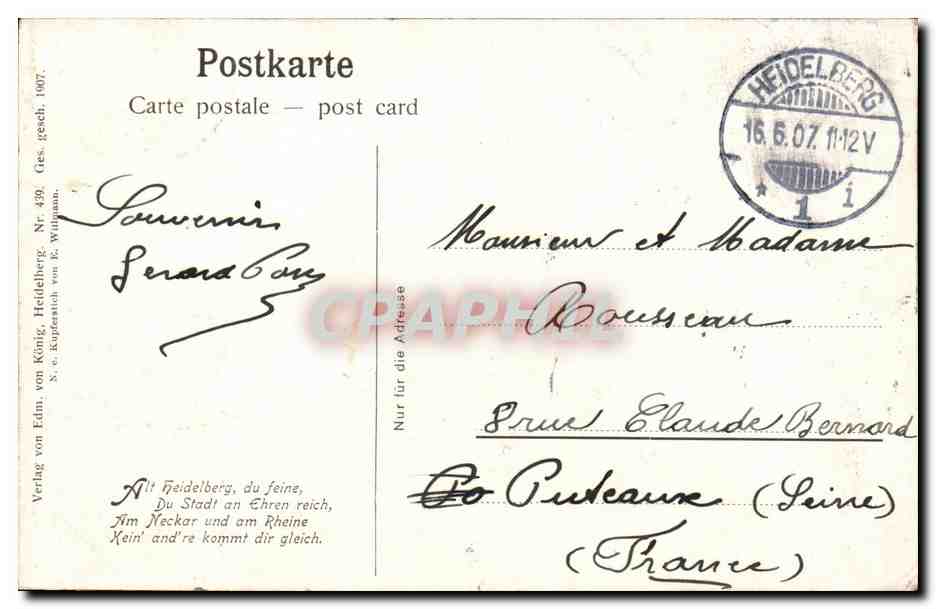 Postkarte
Carte postale — post card
HEIDELBERG
16.6.07. 11-12V
* 1 i
Souvenir
Gerard
Monsieur et Madame
Rousseau
8 rue Claude Bernard
Puteaux (Seine)
(France)
Nur für die Adresse
CPAPHIL
Alt Heidelberg, du feine,
Du Stadt an Ehren reich,
Am Neckar und am Rheine
Kein' and're kommt dir gleich.
Verlag von Edm. von König, Heidelberg. Nr. 439. Ges. gesch. 1907.
N. e. Kupferstich von E. Willmann.